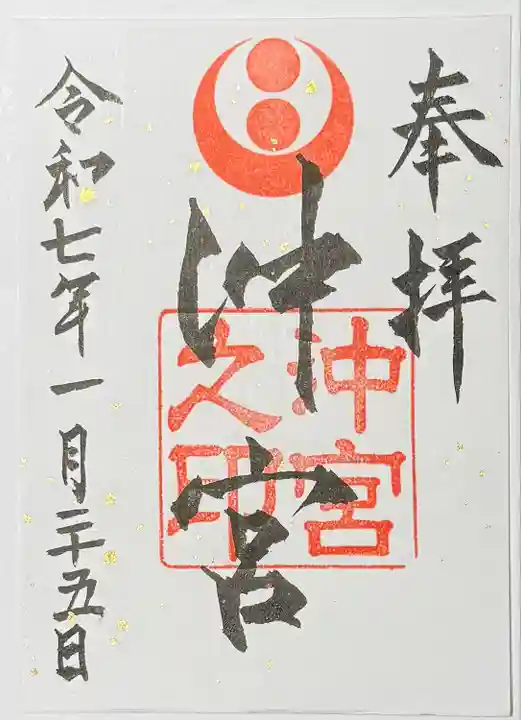 奉拝
沖宮
沖宮之印
令和七年一月二十五日